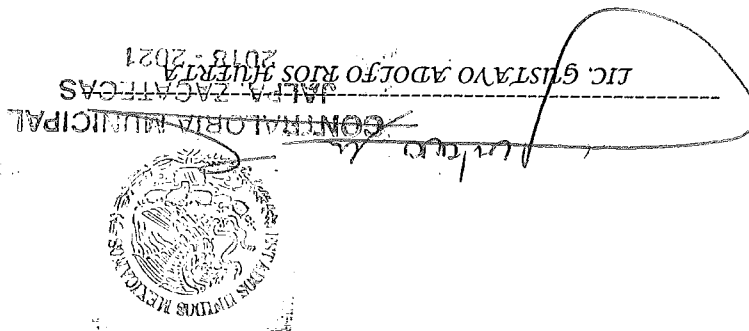 ESTADOS UNIDOS MEXICANOS
CONTRALORIA MUNICIPAL
JALPA ZACATECAS
LIC. GUSTAVO ADOLFO RIOS HUERTA
2018 - 2021